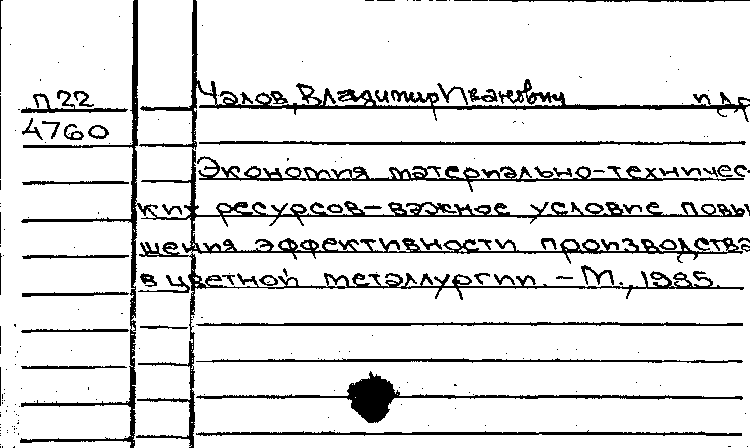 п22 Чалов, Владимир Иванович и др
4760
Экономия материально-техничес-
ких ресурсов-важное условие повы
шения эффективности производства
в цветной металлургии. -М., 1985.